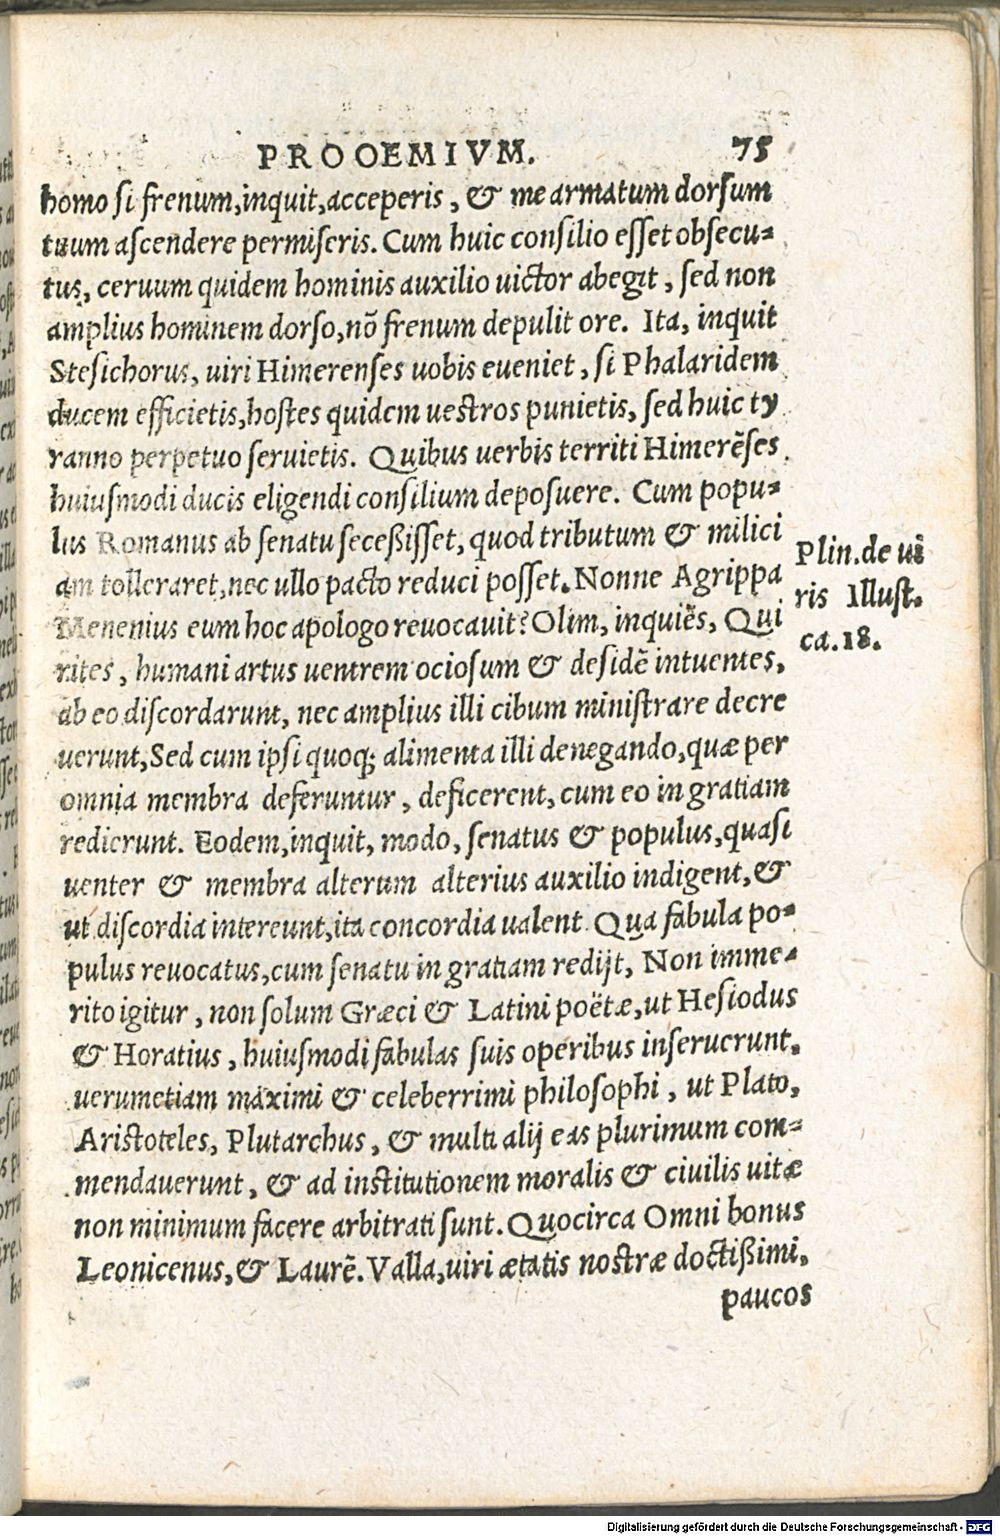 PROOEMIVM. 75
homo si frenum, inquit, acceperis, & me armatum dorsum
tuum ascendere permiseris. Cum huic consilio esset obsecu⸗
tus, ceruum quidem hominis auxilio uictor abegit, sed non
amplius hominem dorso, nõ frenum depulit ore. Ita, inquit
Stesichorus, uiri Himerenses uobis eueniet, si Phalaridem
ducem efficietis, hostes quidem uestros punietis, sed huic ty
ranno perpetuo seruietis. Quibus uerbis territi Himerẽses
huiusmodi ducis eligendi consilium deposuere. Cum popu⸗
lus Romanus ab senatu seceßisset, quod tributum & milici
am tolleraret, nec ullo pacto reduci posset. Nonne Agrippa
Menenius eum hoc apologo reuocauit? Olim, inquiẽs, Qui
rites, humani artus uentrem ociosum & desidẽ intuentes,
ab eo discordarunt, nec amplius illi cibum ministrare decre
uerunt, Sed cum ipsi quoq; alimenta illi denegando, quæ per
omnia membra deferuntur, deficerent, cum eo in gratiam
redierunt. Eodem, inquit, modo, senatus & populus, quasi
uenter & membra alterum alterius auxilio indigent, &
ut discordia intereunt, ita concordia ualent. Qua fabula po⸗
pulus reuocatus, cum senatu in gratiam redijt, Non imme⸗
rito igitur, non solum Græci & Latini poëtæ, ut Hesiodus
& Horatius, huiusmodi fabulas suis operibus inseruerunt,
uerumetiam maximi & celeberrimi philosophi, ut Plato,
Aristoteles, Plutarchus, & multi alij eas plurimum com⸗
mendauerunt, & ad institutionem moralis & ciuilis uitæ
non minimum facere arbitrati sunt. Quocirca Omni bonus
Leonicenus, & Laurẽ. Valla, uiri ætatis nostræ doctißimi,
paucos
Plin. de ui
ris Illust.
ca. 18.
Digitalisierung gefördert durch die Deutsche Forschungsgemeinschaft - DFG